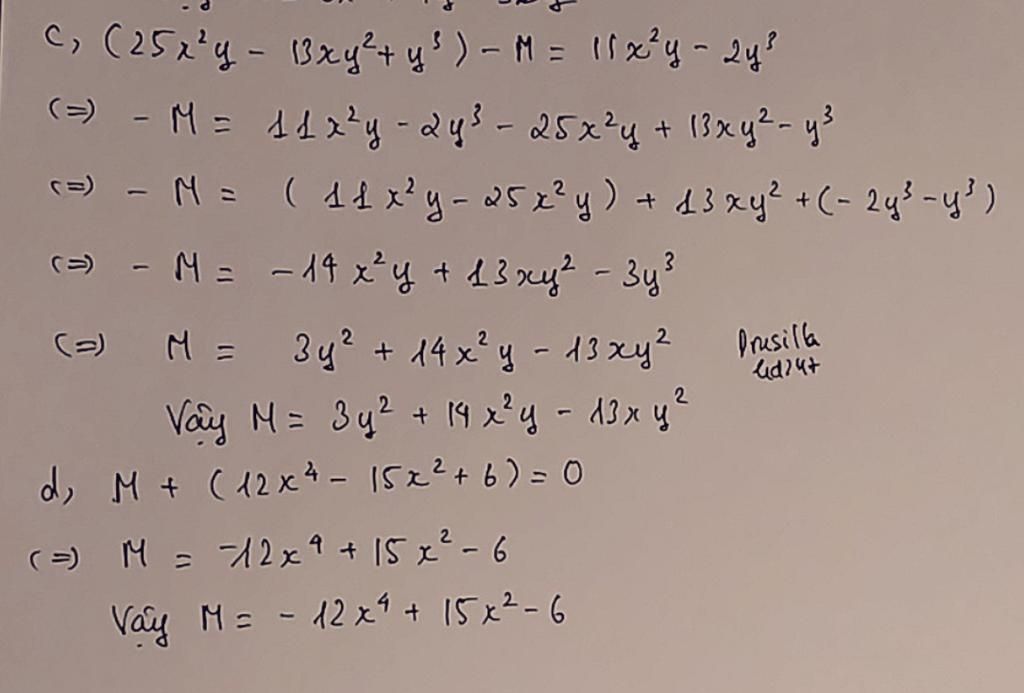 c, (25x²y - 13xy² + y³) - M = 11x²y - 2y³
(=) - M = 11x²y - 2y³ - 25x²y + 13xy² - y³
(=) - M = (11x²y - 25x²y) + 13xy² + (-2y³ - y³)
(=) - M = -14x²y + 13xy² - 3y³
(=) M = 3y² + 14x²y - 13xy²
Drusilla
Vậy M = 3y² + 14x²y - 13xy²
d, M + (12x⁴ - 15x² + 6) = 0
(=) M = -12x⁴ + 15x² - 6
Vậy M = - 12x⁴ + 15x² - 6